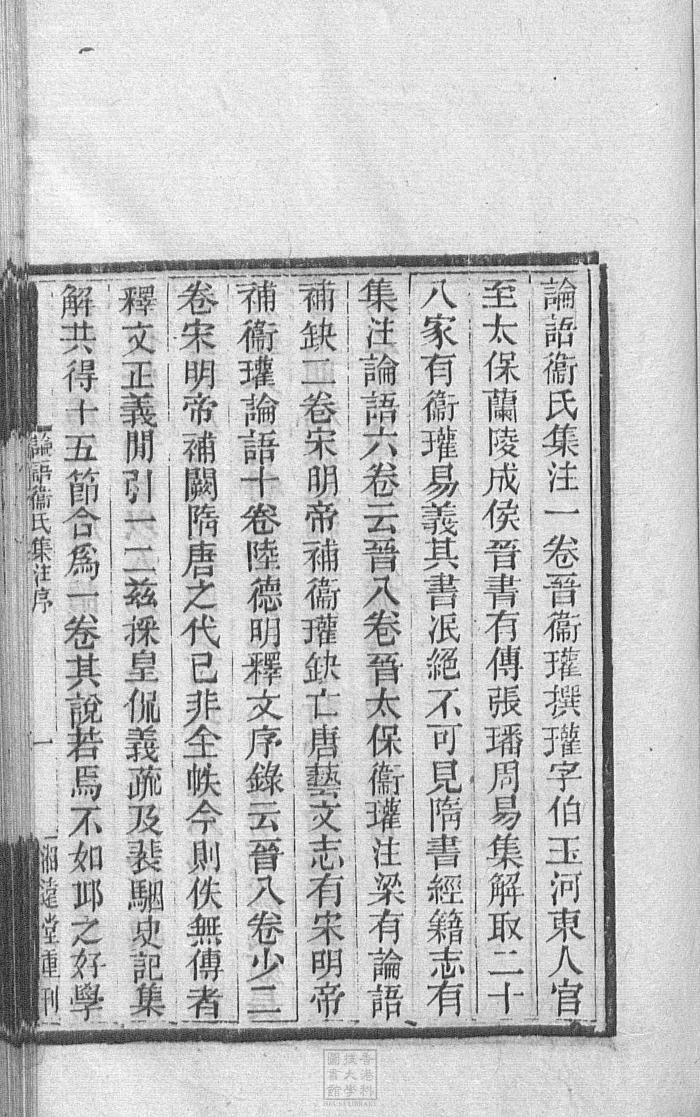 論語衞氏集注一卷晉衞瓘撰瓘字伯玉河東人官
至太保蘭陵成侯晉書有傳張璠周易集解取二十
八家有衞瓘易義其書泯絕不可見隋書經籍志有
集注論語六卷云晉八卷晉太保衞瓘注梁有論語
補缺二卷宋明帝補衞瓘缺亡唐藝文志有宋明帝
補衞瓘論語十卷陸德明釋文序錄云晉八卷少二
卷宋明帝補闕隋唐之代已非全帙今則佚無傳者
釋文正義閒引一二兹採皇侃義疏及裴駰史記集
解共得十五節合爲一卷其說若焉不如邱之好學
論語衞氏集注序
一
湘遠堂重刊
香港科技大學圖書館
HKUST LIBRARY